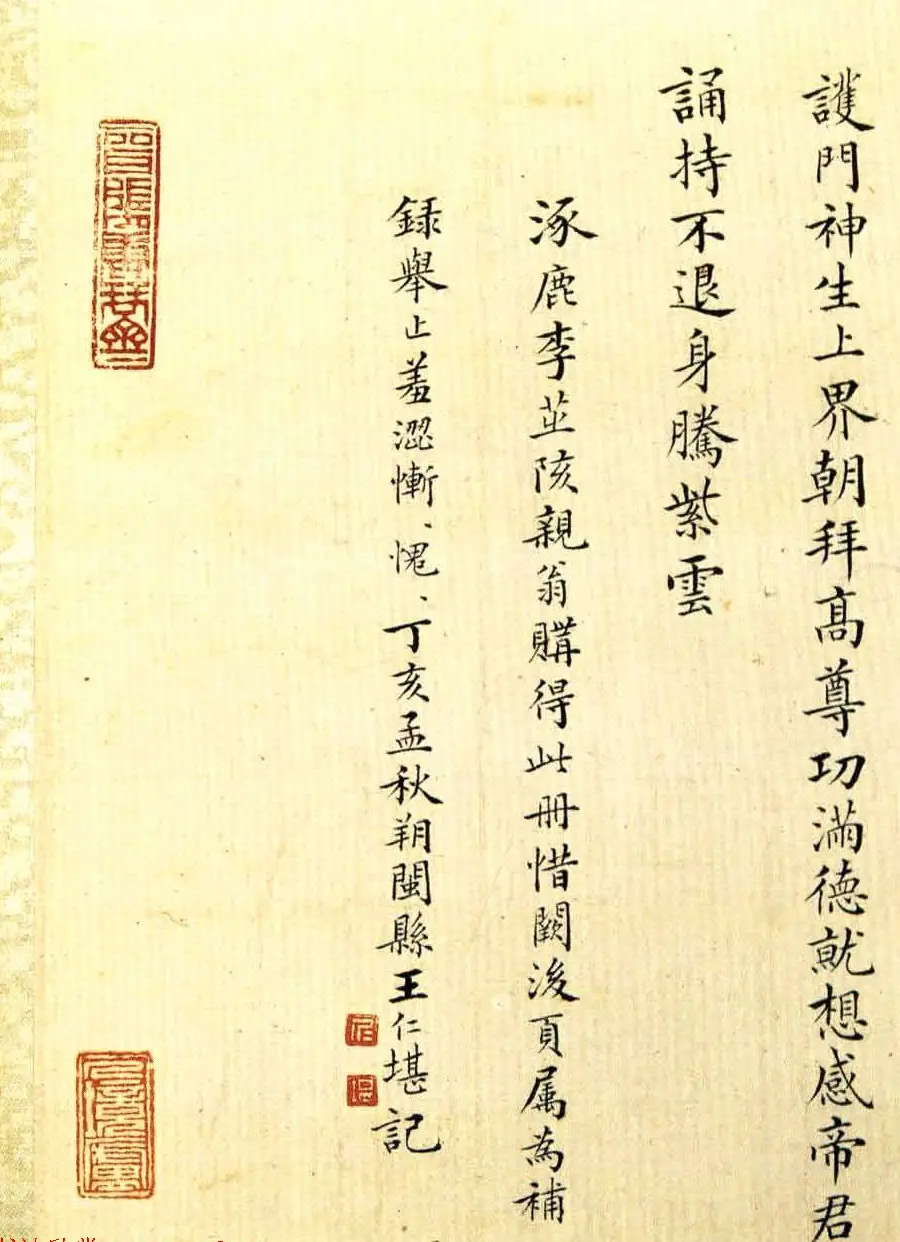 護門神生上界朝拜高尊功滿德就想感帝君
誦持不退身騰紫雲
涿鹿李芷陔親翁購得此冊惜闕後頁属為補
録舉止羞澀慚、愧、丁亥孟秋朔閩縣王仁堪記